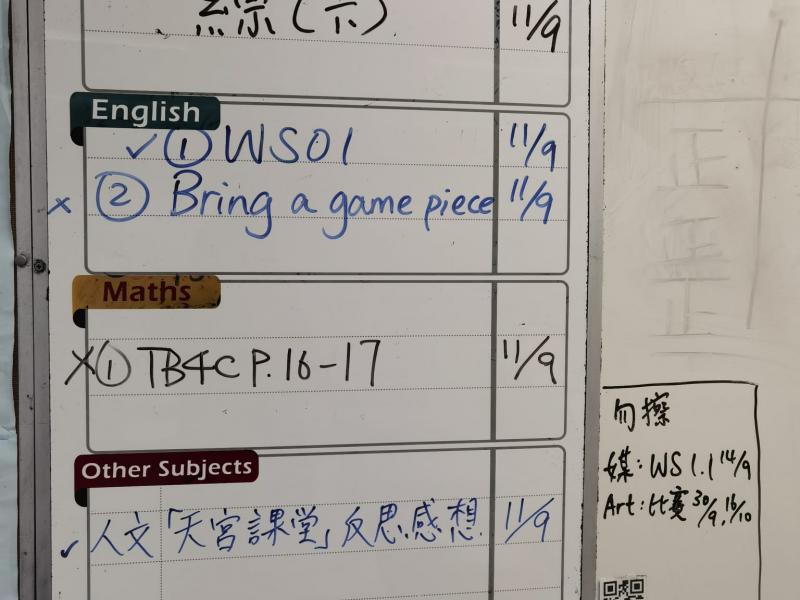 綜(下) 11/9
English
✓ ① WS01 11/9
× ② Bring a game piece 11/9
Maths
× ① TB4C P.16-17 11/9
Other Subjects
✓ 人文「天宮課堂」反思感想 11/9
勿擦
媒: WS 1.1 14/9
Art: 比賽 30/9, 16/10